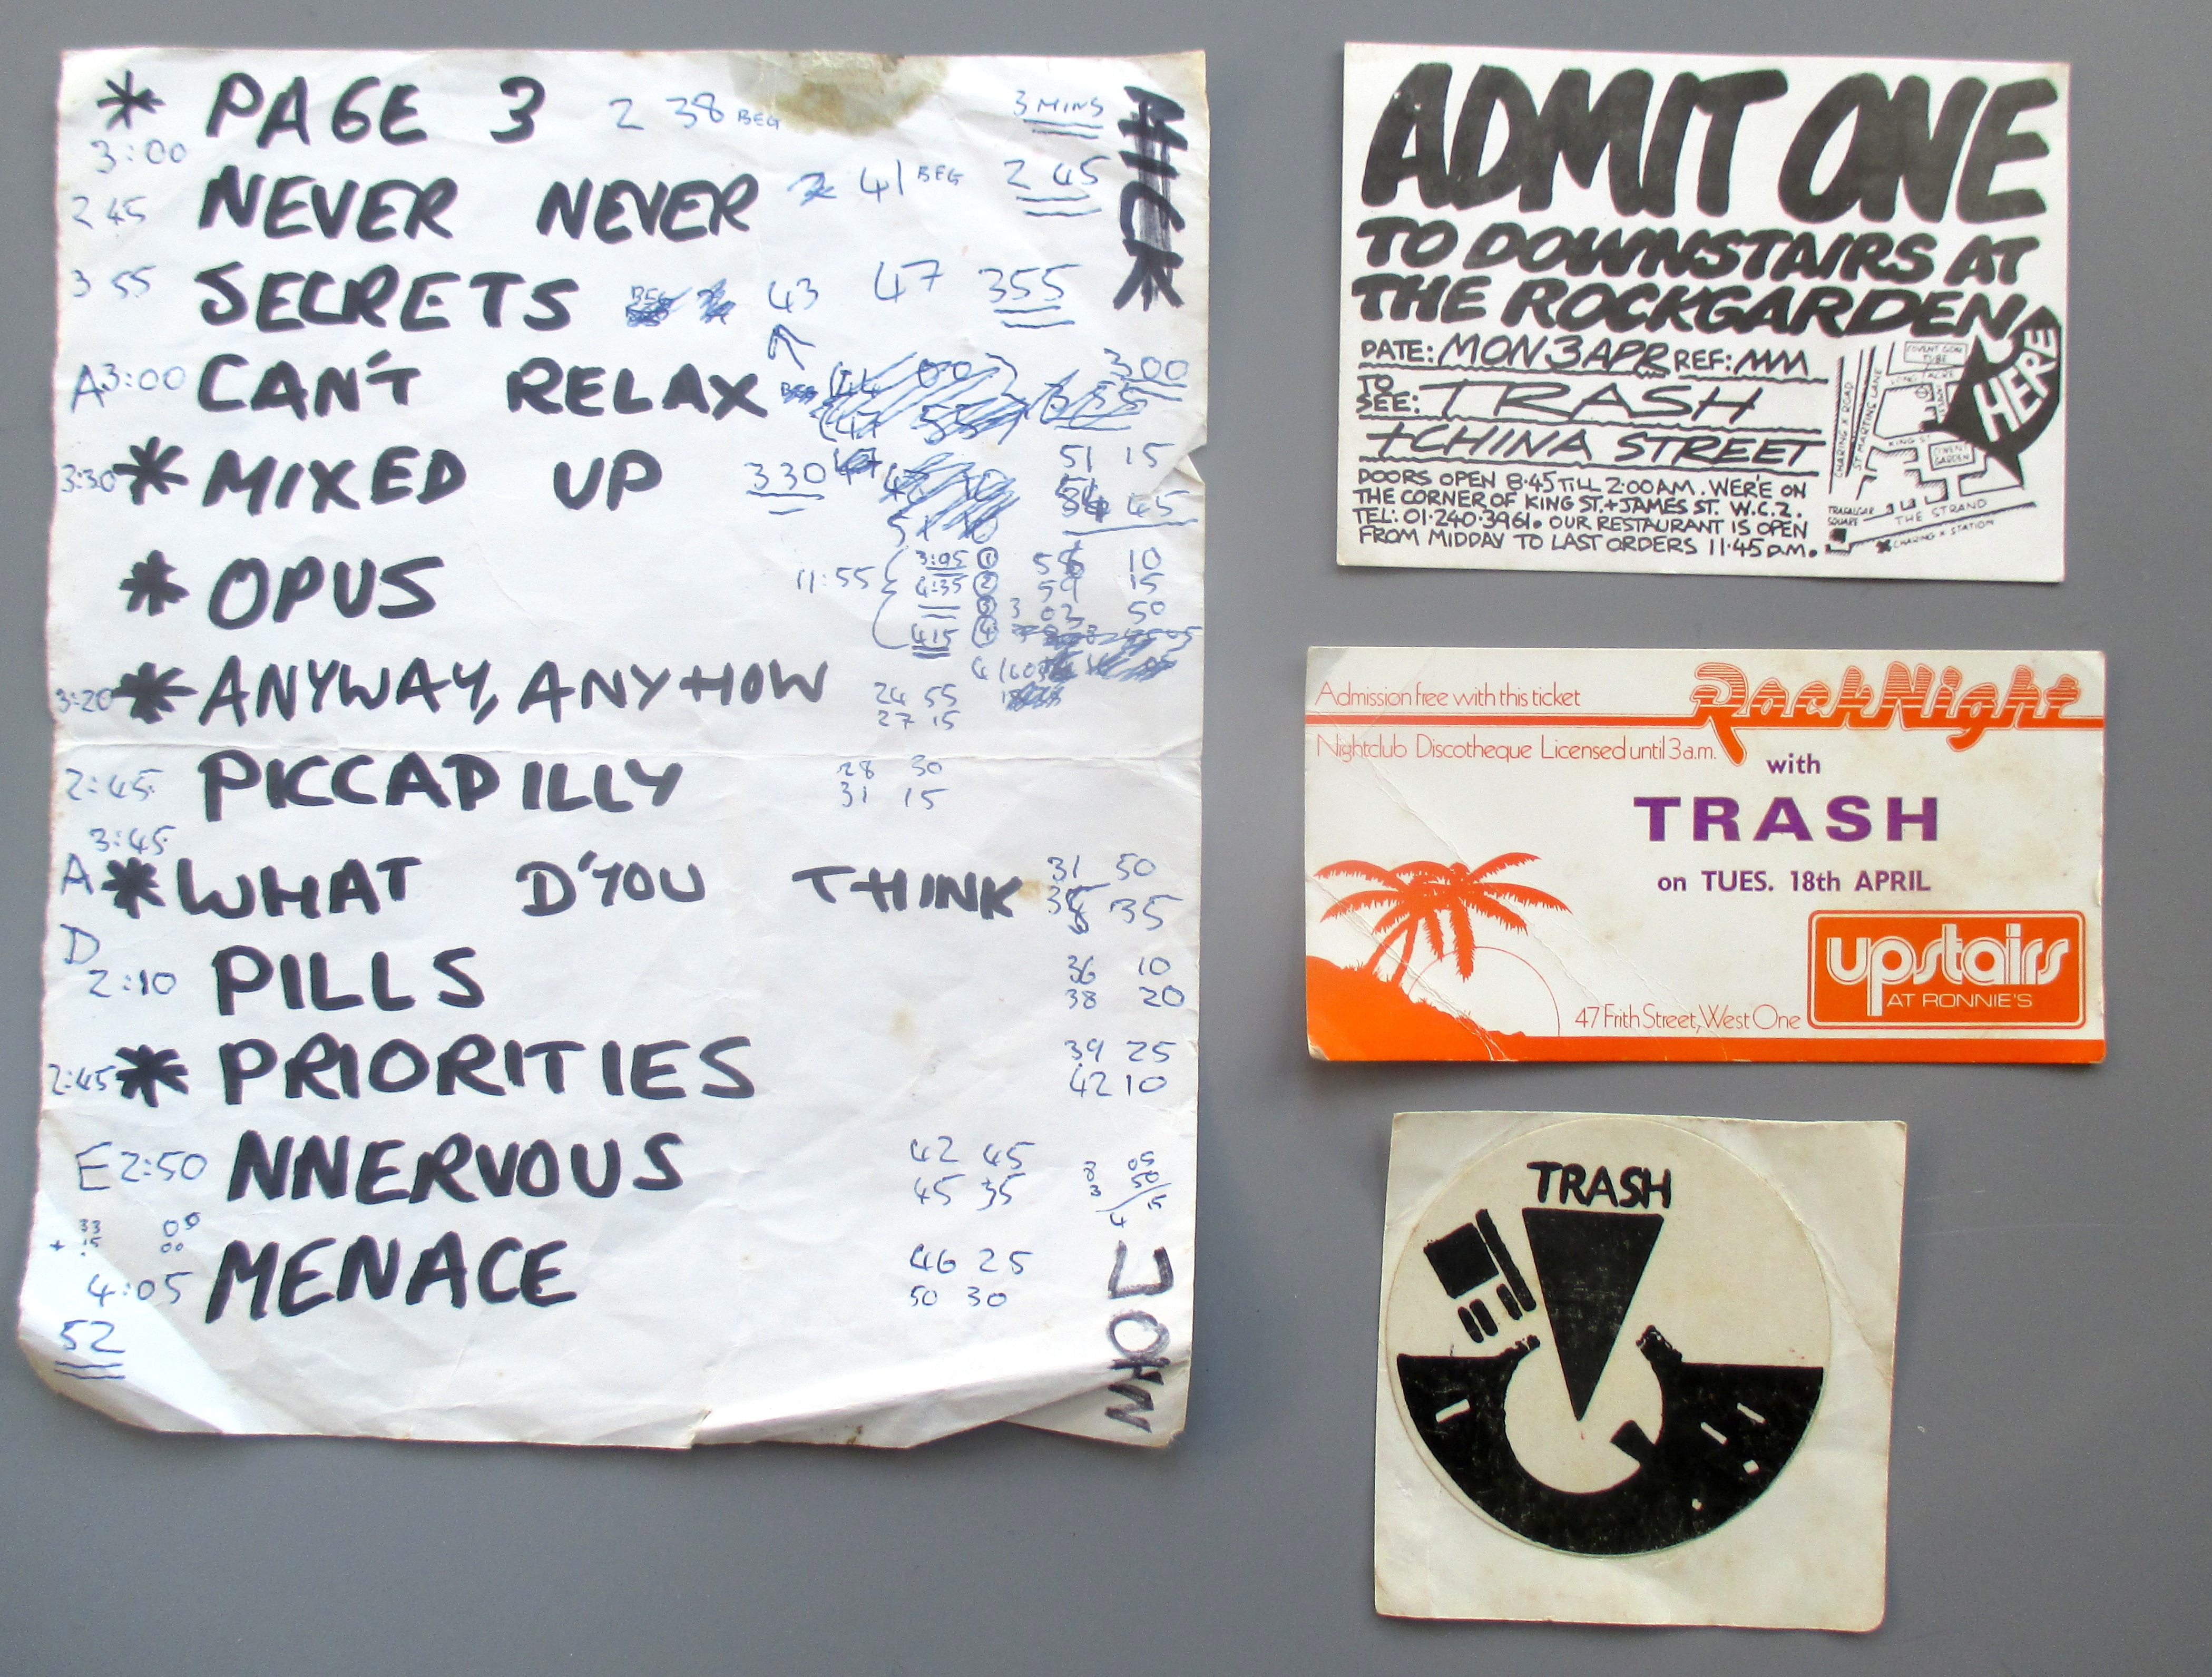 * PAGE 3 2 38 BEG 3 MINS
3:00
2 45 NEVER NEVER 41 BEG 2 45
3 55 SECRETS 43 47 355
A 3:00 CAN'T RELAX 300
3:30 * MIXED UP 330 51 15
45
* OPUS 11:55 3:05 ① 10
4:35 ② 59 15
③ 3 02 50
415 ④
3:20 * ANYWAY, ANYHOW 24 55
27 15
2:45 PICCADILLY 28 30
31 15
3:45
A * WHAT D'YOU THINK 31 50
35
D
2:10 PILLS 36 10
38 20
2:45 * PRIORITIES 39 25
42 10
E 2:50 NNERVOUS 42 45
45 35
33 05
+ 15 00
4:05 MENACE 46 25
50 30
52
MICK
JOHN
ADMIT ONE
TO DOWNSTAIRS AT
THE ROCKGARDEN
DATE: MON 3 APR REF: MM
TO SEE: TRASH
+ CHINA STREET
DOORS OPEN 8·45 TILL 2:00AM. WE'RE ON
THE CORNER OF KING ST. + JAMES ST. W.C.2.
TEL: 01·240·3961. OUR RESTAURANT IS OPEN
FROM MIDDAY TO LAST ORDERS 11·45 p.m.
HERE
COVENT GDN TUBE
LONG ACRE
CHARING X ROAD
ST MARTINS LANE
KING ST
COVENT GARDEN
TRAFALGAR SQUARE
THE STRAND
CHARING X STATION
Admission free with this ticket
RockNight
Nightclub Discotheque Licensed until 3 a.m.
with
TRASH
on TUES. 18th APRIL
upstairs
AT RONNIE'S
47 Frith Street, West One
TRASH